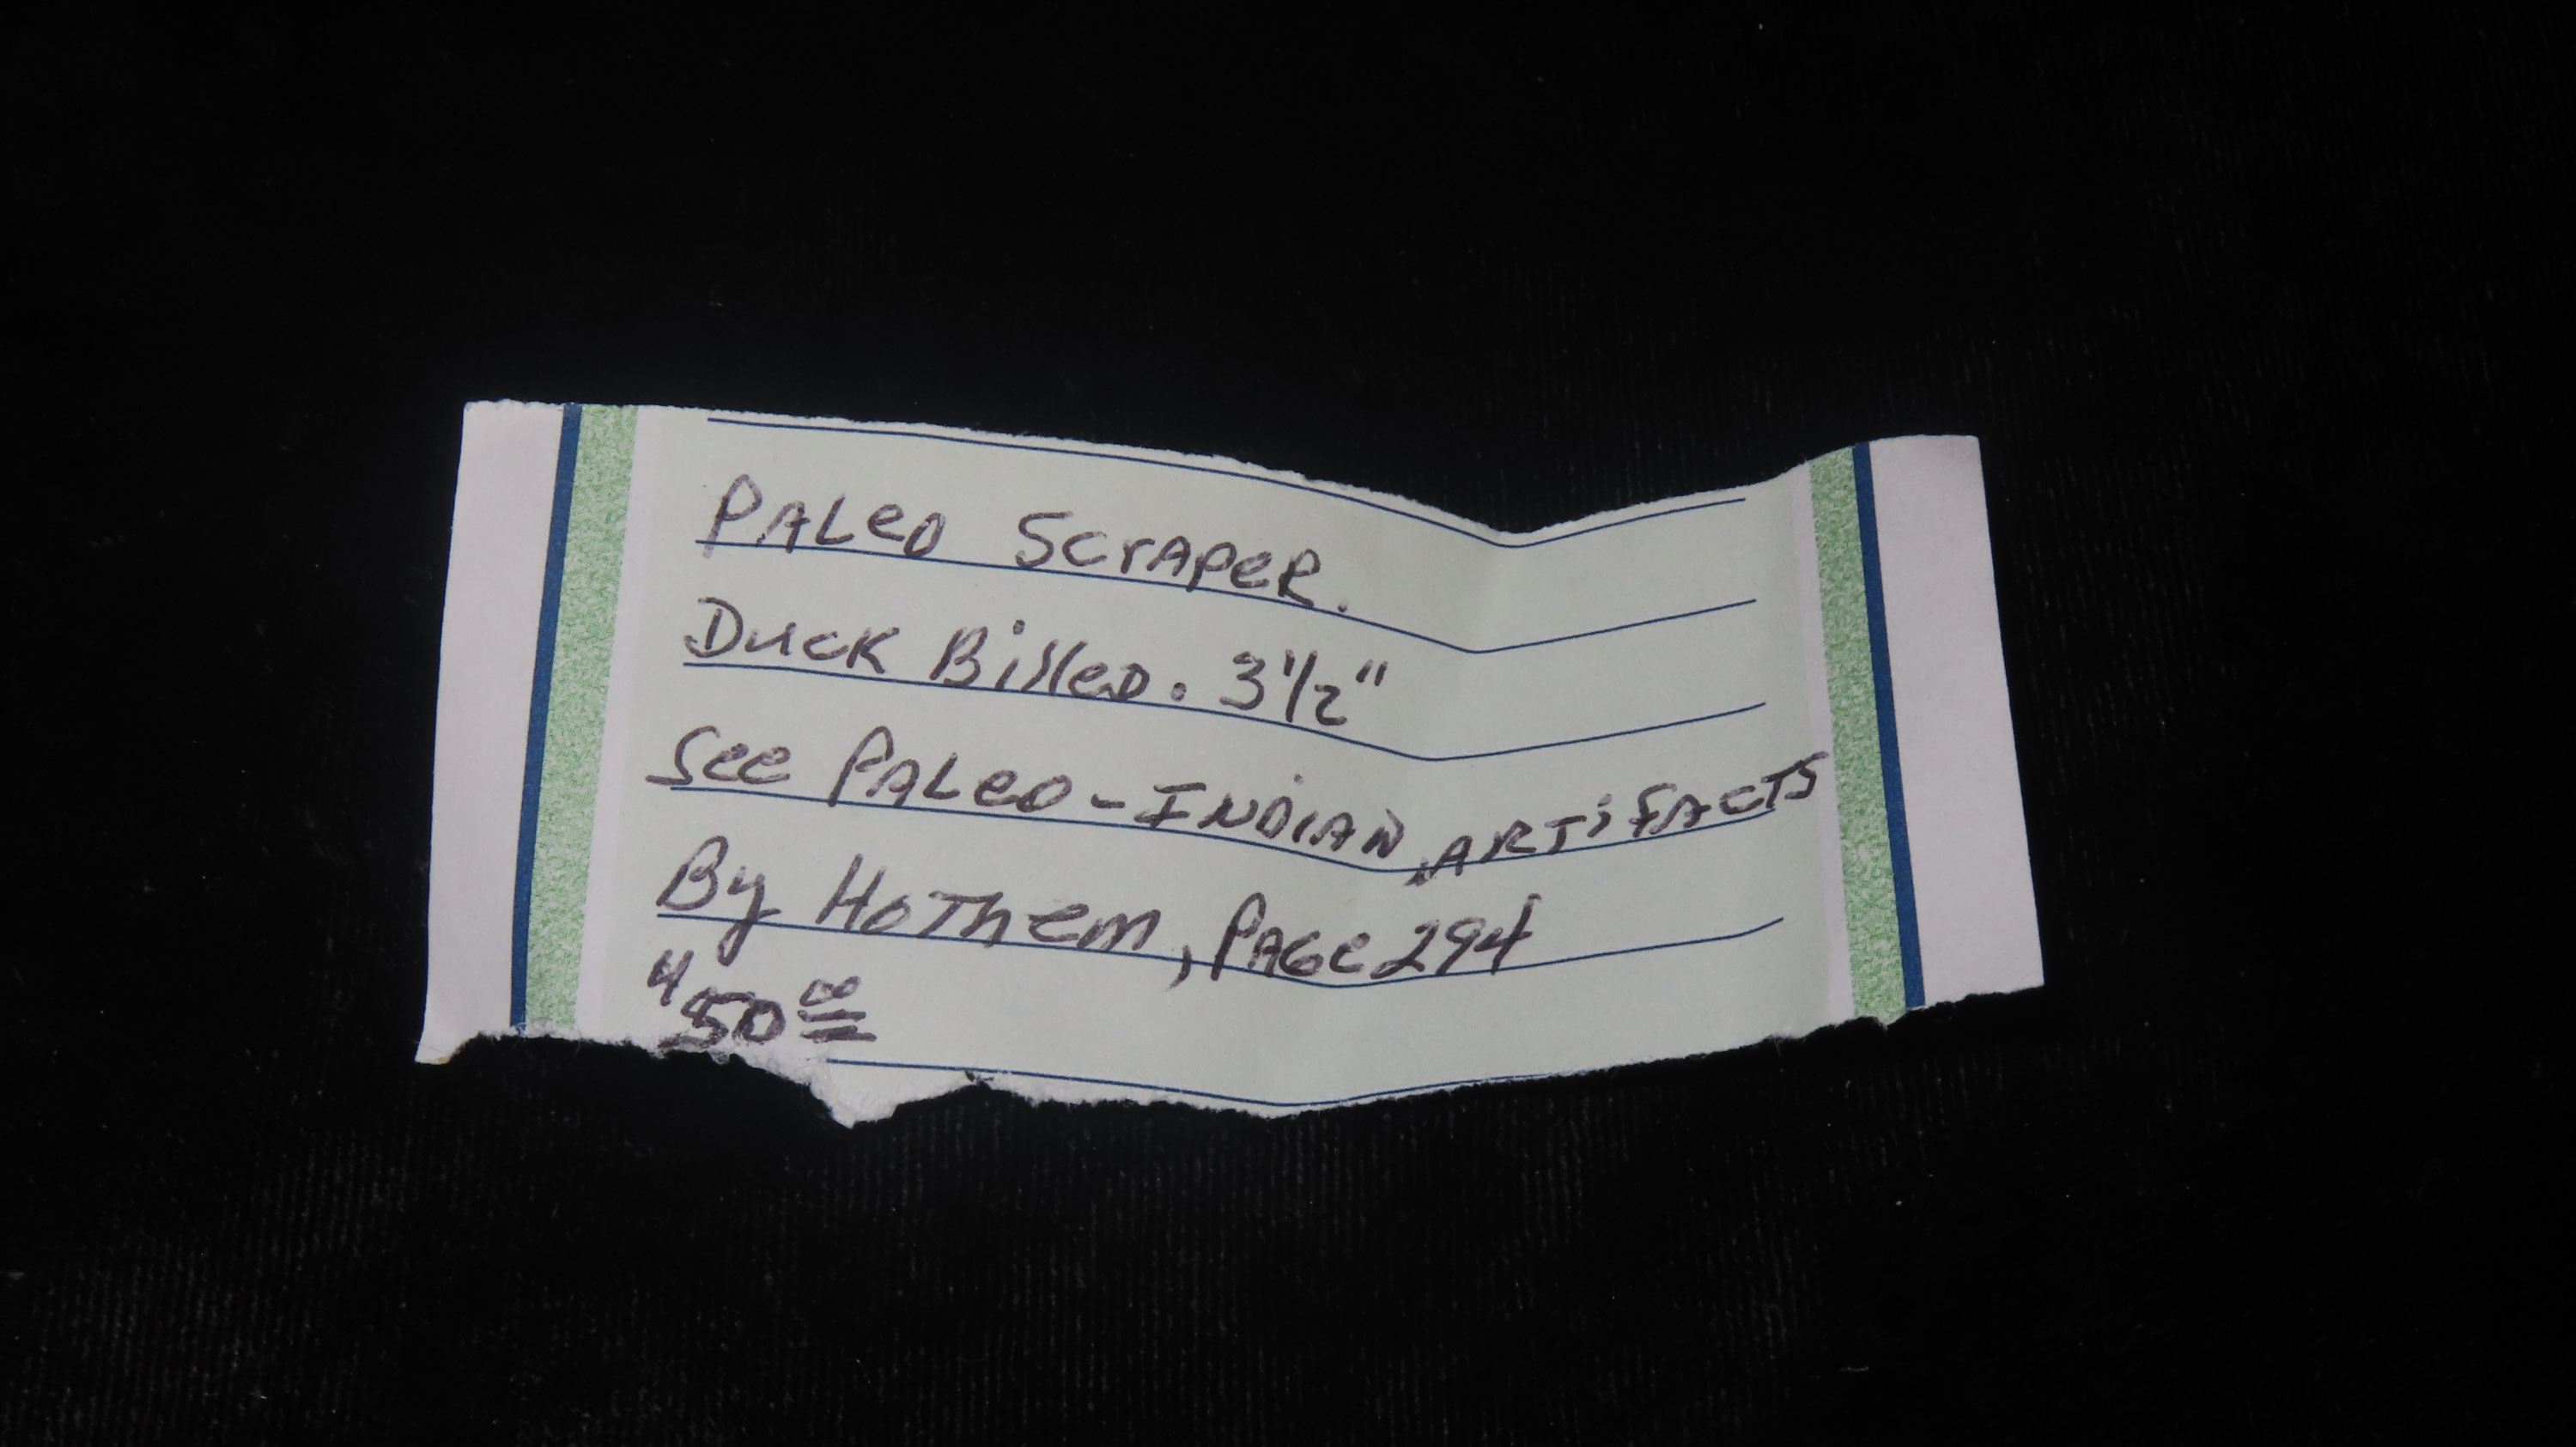 PALeo ScrAPeR.
Duck Billed. 3 1/2"
See PALeo-INDiAN ARTiFACTS
By HoThem, PAGe 294
50 00